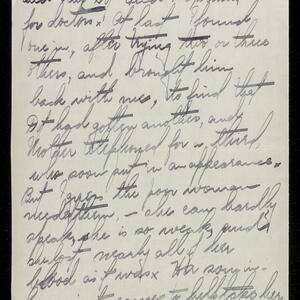 for doctors. At last I found
one in, after trying two or three
others, and brought him
back with me, to find that
Dot had gotten another, and
Mother telephoned for a third,
who soon put in an appearance.
But I guess the poor woman
needed them, - she can hardly
speak, she is so weak, and
she lost nearly all of her
blood as it was. Her